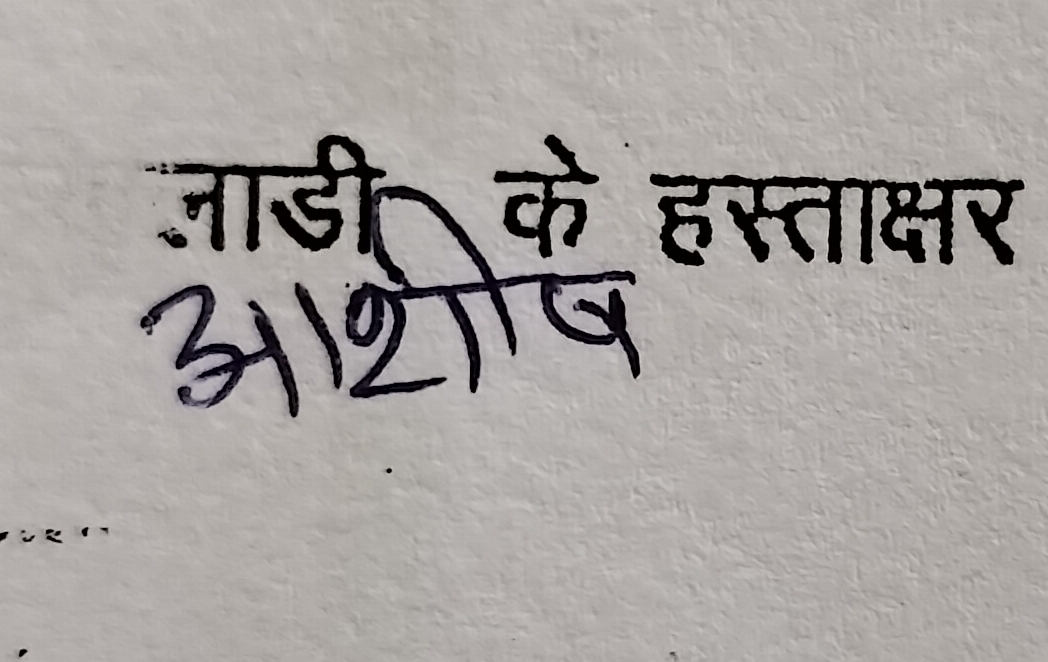 के हस्ताक्षर
आशीष